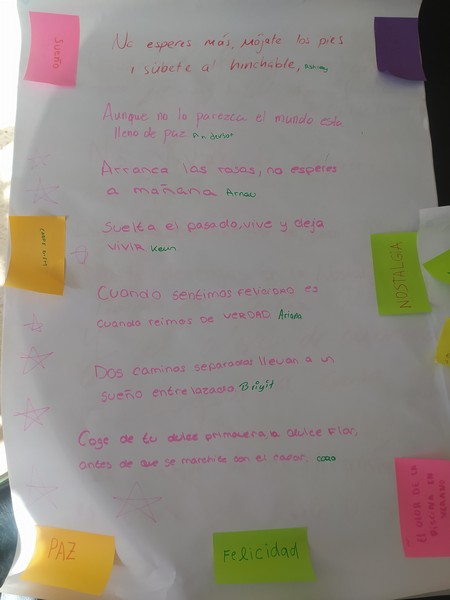 SUEÑO
No esperes más, mójate los pies
i súbete al hinchable,
Aunque no lo parezca el mundo esta
lleno de paz
Arranca las rosas, no esperes
a mañana Arnau
Suelta el pasado, vive y deja
vivir Kevin
NOSTALGIA
Cuando sentimos felicidad es
cuando reimos de verdad Ariana
Dos caminos separados llevan a un
sueño entrelazado. Brigit
Coge de tu dulce primavera, a dulce flor,
antes de que se marchite con el calor. CORO
EL OLOR DE LA
PISCINA EN
VERANO
PAZ
Felicidad